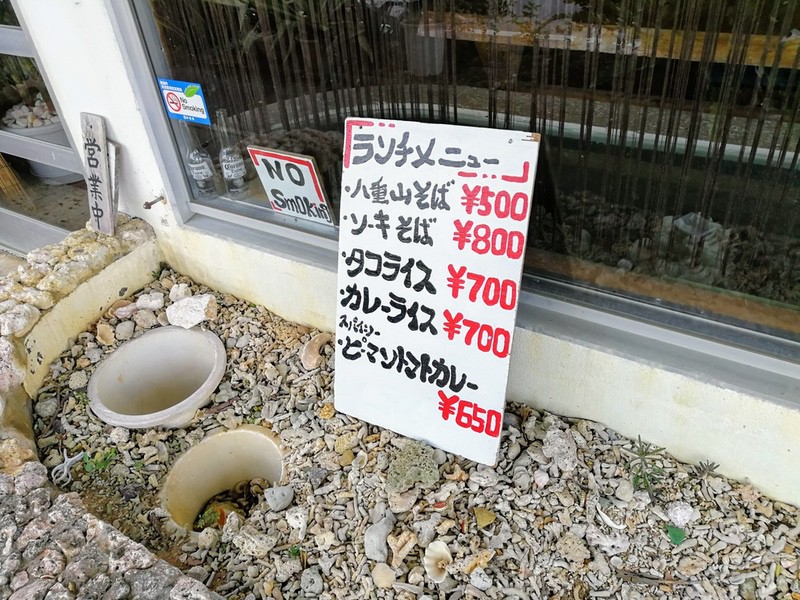 No
Smoking
営業中
NO
SmOKING
ランチメニュー
・八重山そば ¥500
・ソーキそば ¥800
・タコライス ¥700
・カレーライス ¥700
スパイシー
・ピーマントマトカレー
¥650